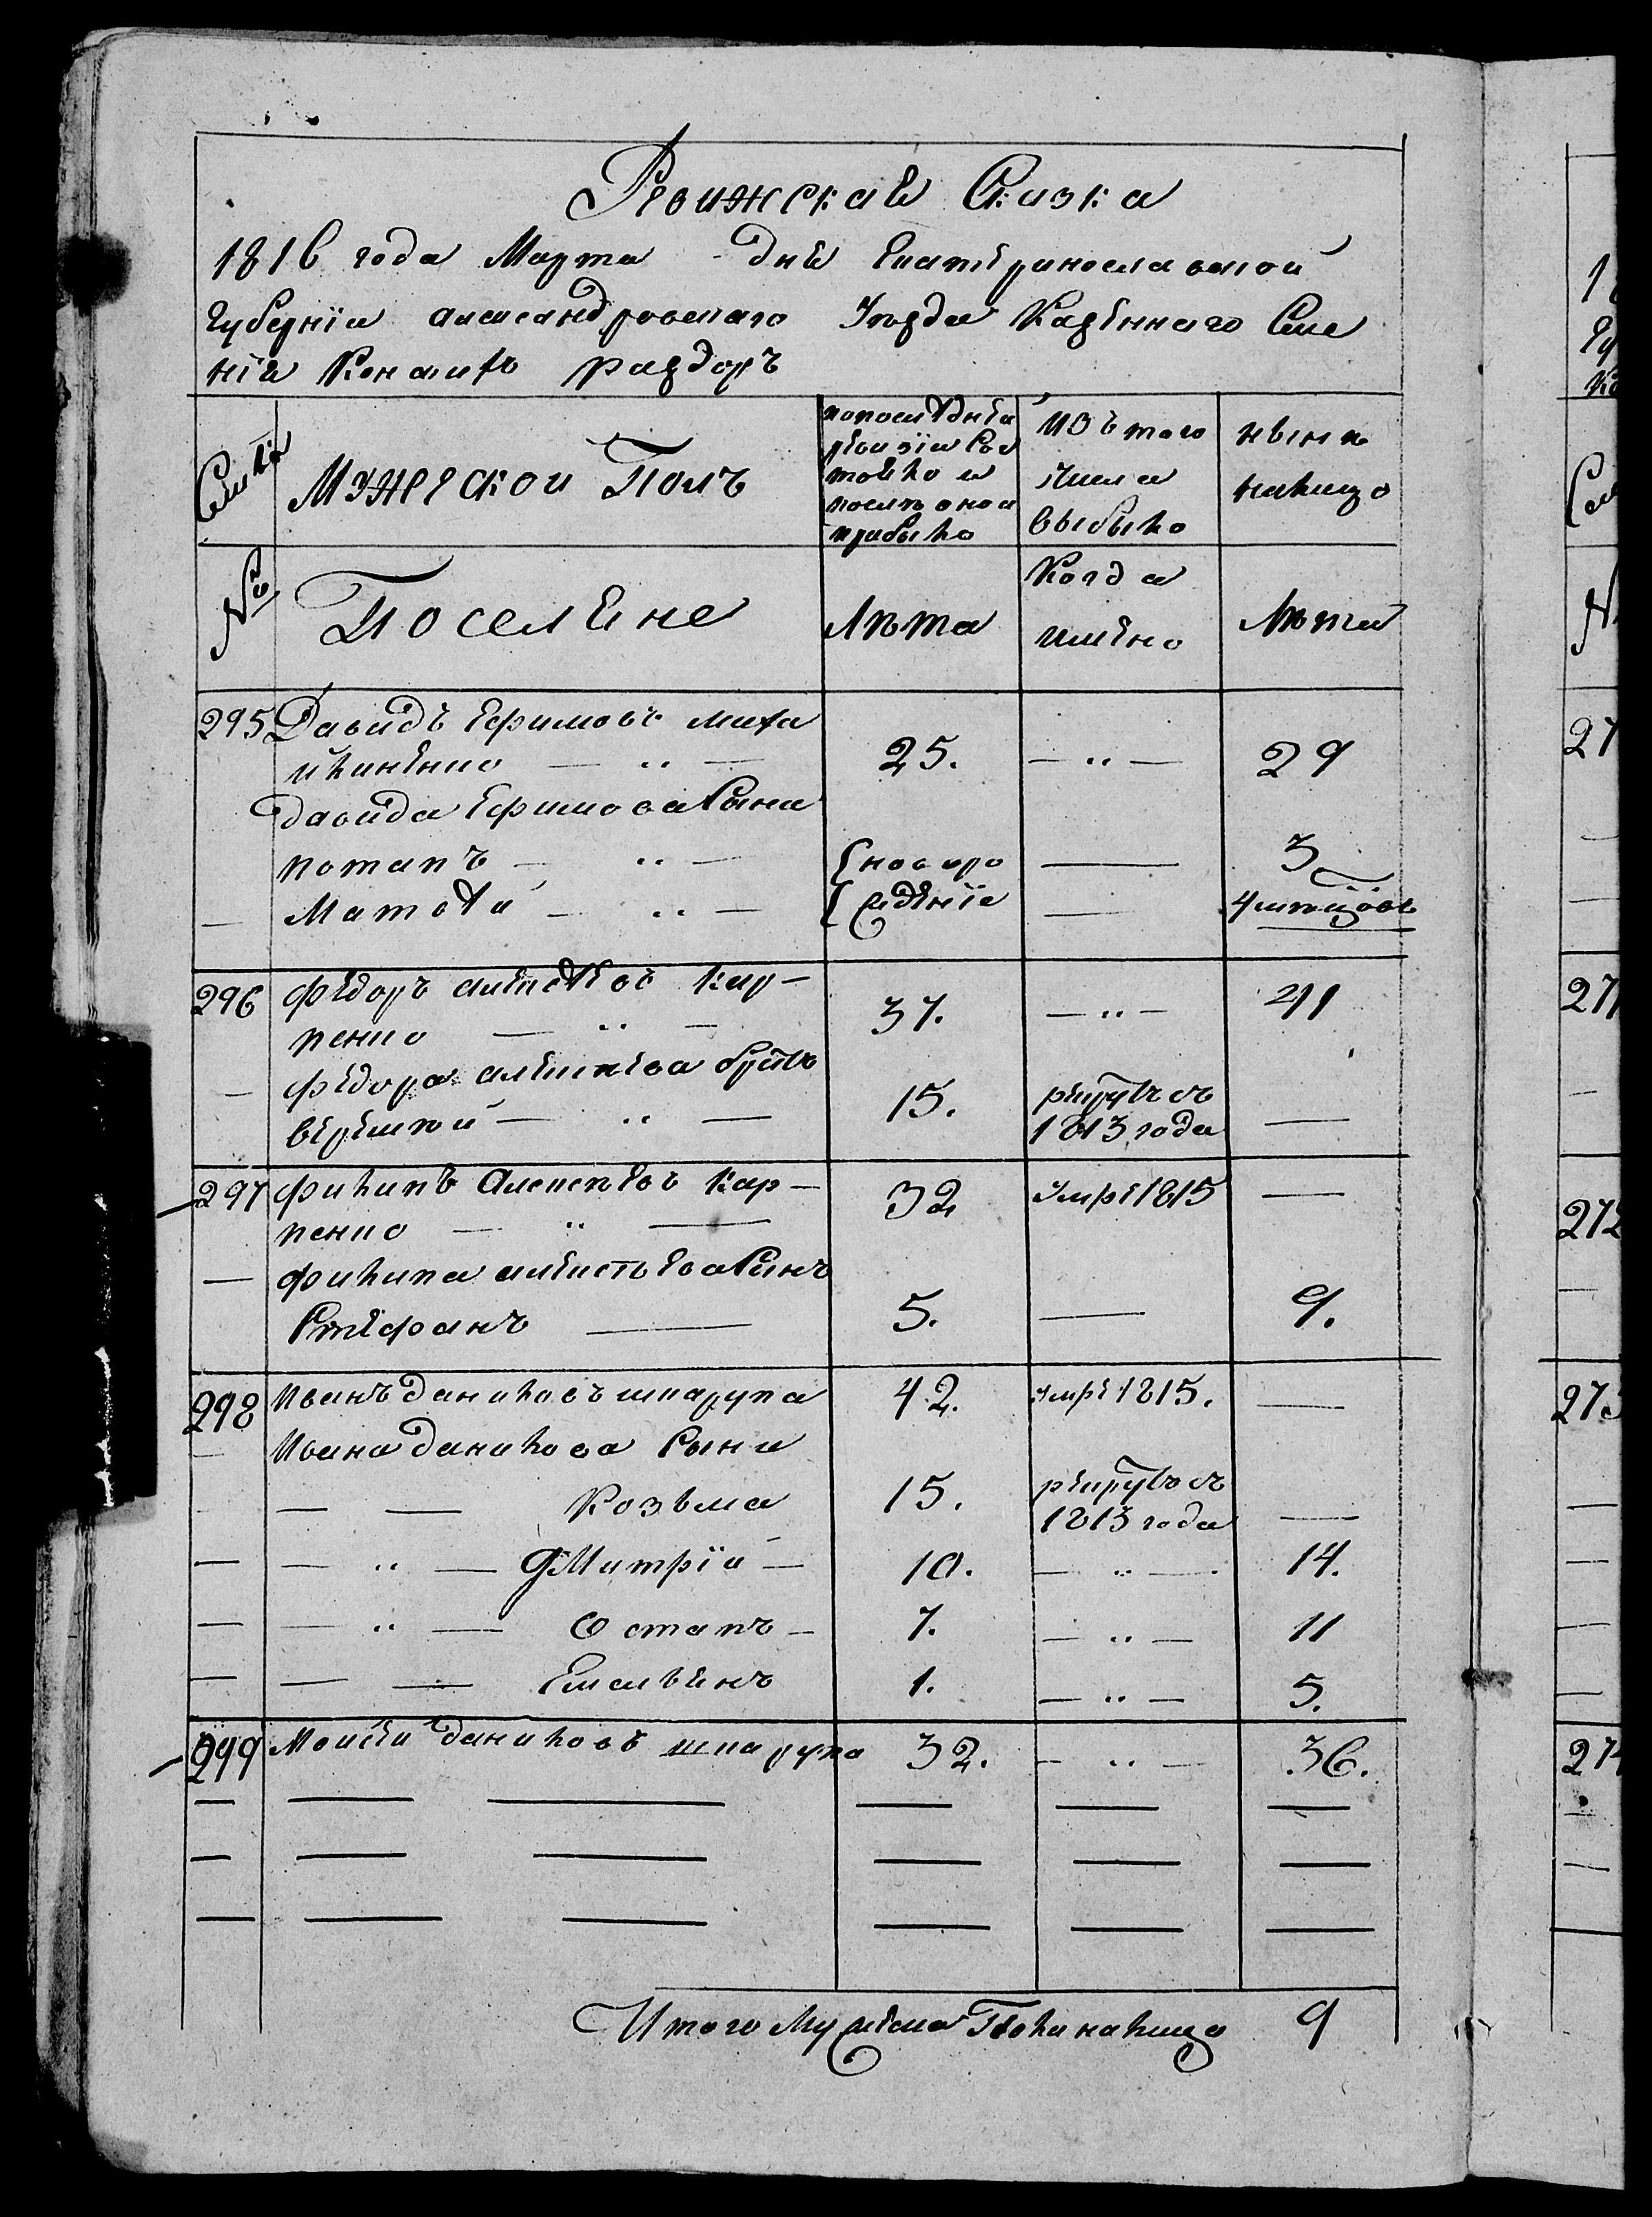 Ревижская Сказка
1816 года Марта дня Екатеринославской
Губернїи александровскаго Уѣзда Казеннаго Селе
нїя Конскихъ раздоръ
Семьи
Мужеской Полъ
попоследнеи
ревизїи Сос
тояло и
послѣ оной
прибыло
изъ того
числа
выбыло
нынѣ
налицо
№
Поселяне
Лѣта
Когда
имено
Лѣта
295 Давидъ Ефимовъ Миха
йличенко — „ — 25. — „ — 29
Давида Ефимова Сына
потапъ — „ — ново ро — 3
— Матвѣй — „ — жденїе — 4 мѣсяцовъ
296 Федоръ алексѣевъ Кар-
пенко — „ — 37. — „ — 41
— Федора алексѣева братъ
Веремѣй — „ — 15. рекрутъ съ
1813 года —
297 Филипъ Алексѣевъ Кар-
пенко — „ — 32 умре 1815 —
— Филипа алексѣева Сынъ
Стефанъ — 5. — 9.
298 Иванъ даниловъ шкарупа 42. умре 1815. —
— Ивана данилова Сыны
— — Козьма 15. рекрутъ съ
1813 года —
— — „ — Дмитрїй — 10. — „ — 14.
— — „ — Остапъ — 7. — „ — 11
— — — Емельянъ 1. — „ — 5.
299 Моисей даниловъ шкарупа 32. — „ — 36.
Итого Мужеска Пола налицо 9
1
Гу
Но
Се
№
27
271
272
273
274